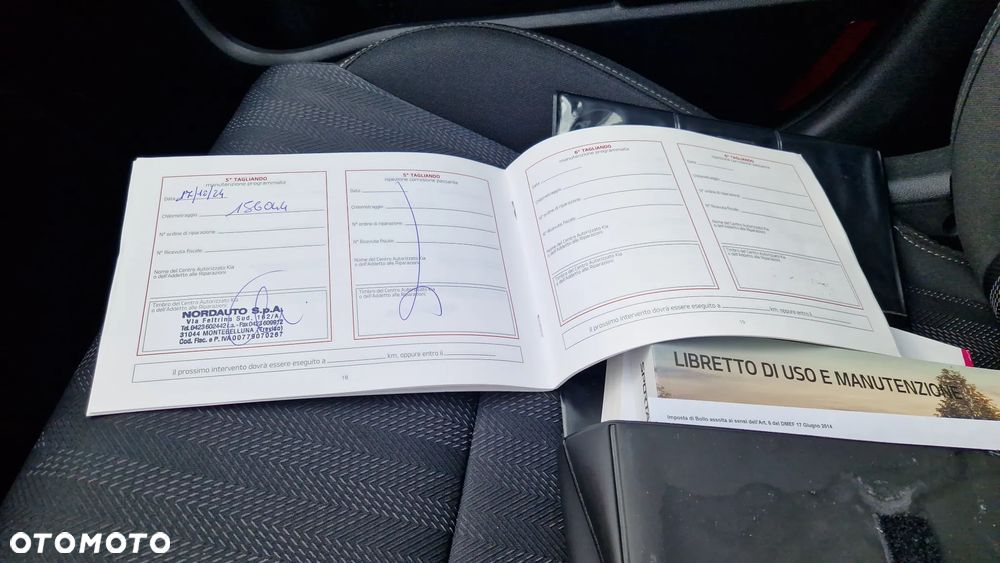 5° TAGLIANDO
manutenzione programmata
Data 17/10/24
Chilometraggio 156044
N° ordine di riparazione
N° Ricevuta fiscale
Nome del Centro Autorizzato Kia
o dell'Addetto alle Riparazioni
Timbro del Centro Autorizzato Kia
o dell'Addetto alle Riparazioni
NORDAUTO S.p.A.
Via Feltrina Sud, 162/A
Tel. 0423602442 r.a. - Fax 0423609972
31044 MONTEBELLUNA (Treviso)
Cod. Fisc. e P. IVA 00779070267
5° TAGLIANDO
ispezione corrosione passante
Data
Chilometraggio
N° ordine di riparazione
N° Ricevuta fiscale
Nome del Centro Autorizzato Kia
o dell'Addetto alle Riparazioni
Timbro del Centro Autorizzato Kia
o dell'Addetto alle Riparazioni
il prossimo intervento dovrà essere eseguito a km, oppure entro il
18
6° TAGLIANDO
manutenzione programmata
Data
Chilometraggio
N° ordine di riparazione
N° Ricevuta fiscale
Nome del Centro Autorizzato Kia
o dell'Addetto alle Riparazioni
Timbro del Centro Autorizzato Kia
o dell'Addetto alle Riparazioni
6° TAGLIANDO
ispezione corrosione passante
Data
Chilometraggio
N° ordine di riparazione
N° Ricevuta fiscale
Nome del Centro Autorizzato Kia
o dell'Addetto alle Riparazioni
Timbro del Centro Autorizzato Kia
o dell'Addetto alle Riparazioni
il prossimo intervento dovrà essere eseguito a km, oppure entro il
19
LIBRETTO DI USO E MANUTENZIONE
Imposta di Bollo assolta ai sensi dell'Art. 6 del DMEF 17 Giugno 2014
OTOMOTO